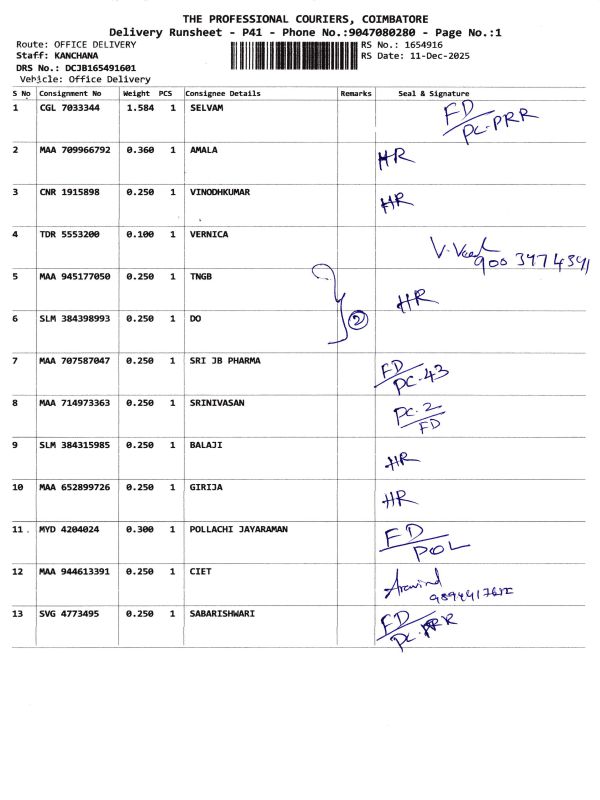 THE PROFESSIONAL COURIERS, COIMBATORE
Delivery Runsheet - P41 - Phone No.:9047080280 - Page No.:1
Route: OFFICE DELIVERY RS No.: 1654916
Staff: KANCHANA RS Date: 11-Dec-2025
DRS No.: DCJB165491601
Vehicle: Office Delivery
S No Consignment No Weight PCS Consignee Details Remarks Seal & Signature
1 CGL 7033344 1.584 1 SELVAM FD/PC-PRR
2 MAA 709966792 0.360 1 AMALA HR
3 CNR 1915898 0.250 1 VINODHKUMAR HR
4 TDR 5553200 0.100 1 VERNICA
5 MAA 945177050 0.250 1 TNGB HR
6 SLM 384398993 0.250 1 DO 2
7 MAA 707587047 0.250 1 SRI JB PHARMA FD/PC-43
8 MAA 714973363 0.250 1 SRINIVASAN PC-2/FD
9 SLM 384315985 0.250 1 BALAJI HR
10 MAA 652899726 0.250 1 GIRIJA HR
11. MYD 4204024 0.300 1 POLLACHI JAYARAMAN FD/POL
12 MAA 944613391 0.250 1 CIET Aravind
13 SVG 4773495 0.250 1 SABARISHWARI FD/PC-PRR